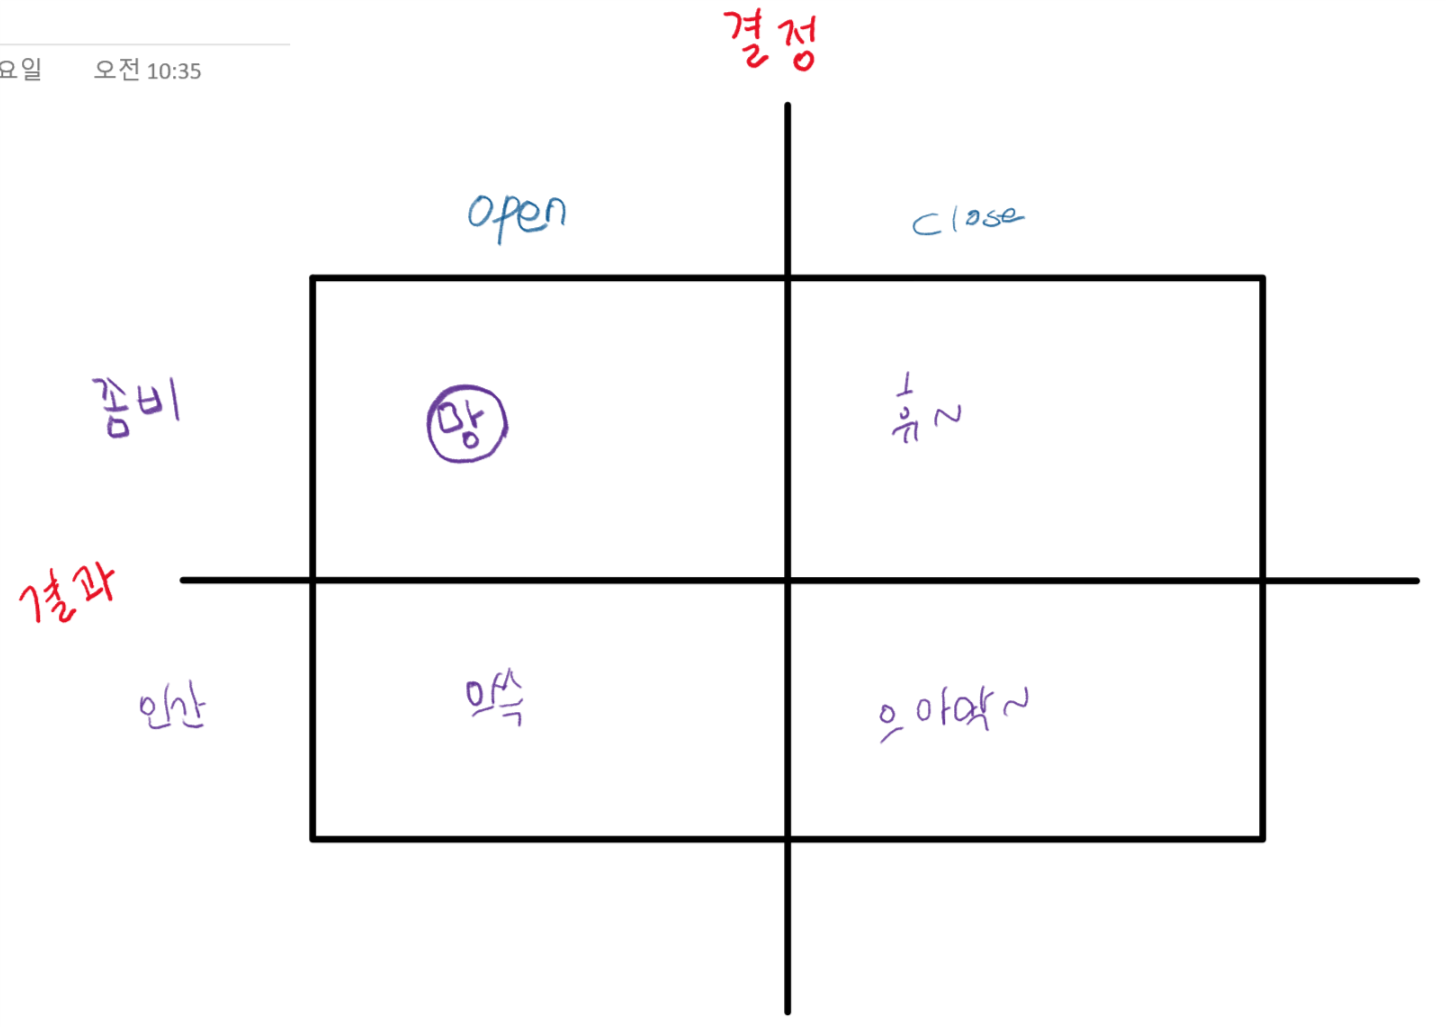 결정
요일 오전 10:35
open close
좀비 망 휴~
결과
인간 으쓱 으아악~